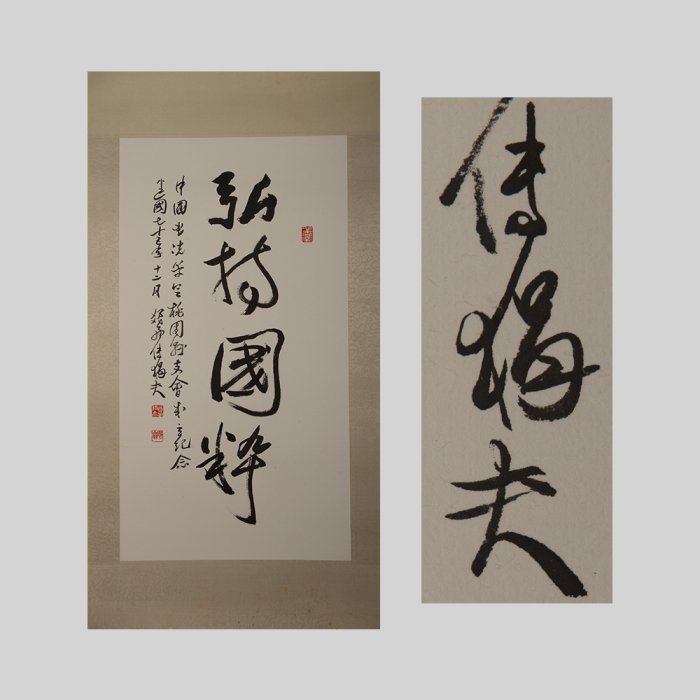 弘揚國粹
中國書法學會桃園縣支會成立紀念
建國七十三年十二月 傅狷夫
傅狷夫